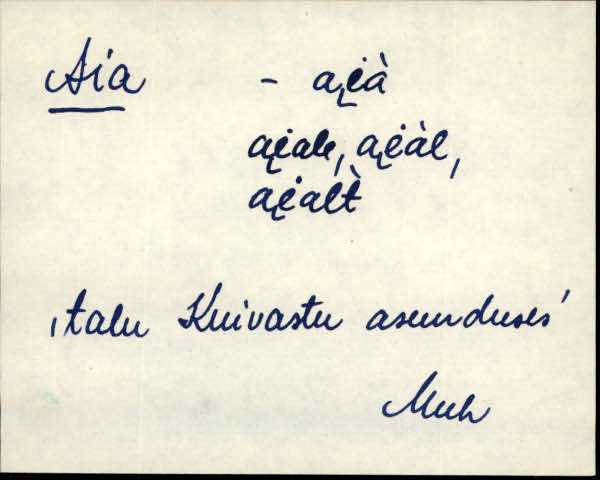 Aia - ai̯à
ai̯ale, ai̯àl,
ai̯alt̀
‚talu Kuivastu asunduses’
Muh